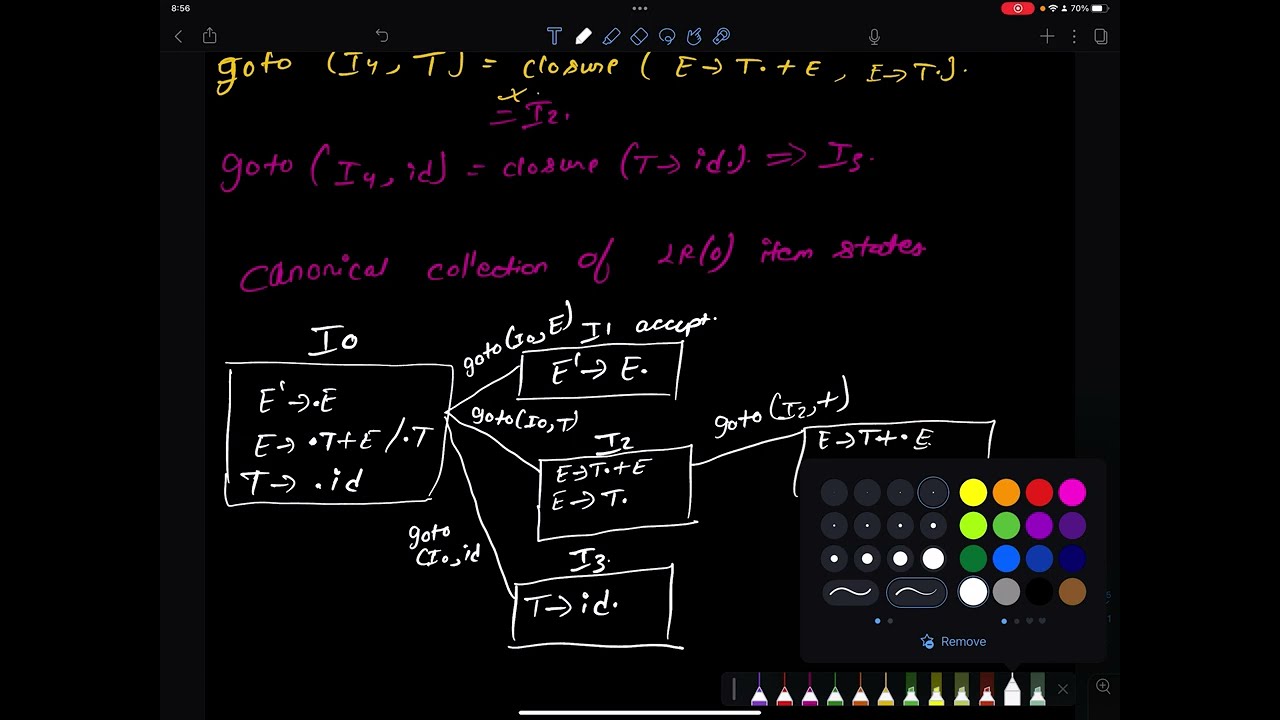 8:56
70%
goto (I4, T) = closure ( E→T.+E, E→T.).
= I2.
goto (I4, id) = closure (T→ id.) => I3.
Canonical collection of LR(0) item states
I0
E'→.E
E→ .T+E /.T
T→ .id
goto(I0,E)
I1 accept.
E'→ E.
goto(I0,T)
I2
E→T.+E
E→ T.
goto(I2,+)
E→T+.E
goto
(I0,id
I3
T→id.
Remove